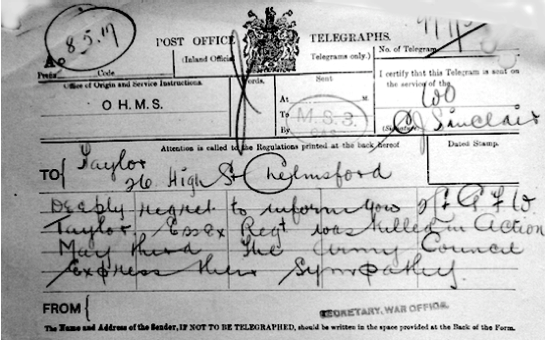 8.5.17
POST OFFICE TELEGRAPHS.
(Inland Official Telegrams only.)
No. of Telegram
Prefix Code
Words.
Sent
I certify that this Telegram is sent on
the service of the
Office of Origin and Service Instructions.
O H.M.S.
At M.
To M.S.3.
By
WO
(Signature) Sinclair
Attention is called to the Regulations printed at the back hereof
Dated Stamp.
TO { Taylor
26 High St Chelmsford
Deeply regret to inform you 2/Lt G F W
Taylor Essex Regt was killed in Action
May third The Army Council
Express their Sympathy.
FROM {
SECRETARY, WAR OFFICE.
The Name and Address of the Sender, IF NOT TO BE TELEGRAPHED, should be written in the space provided at the Back of the Form.